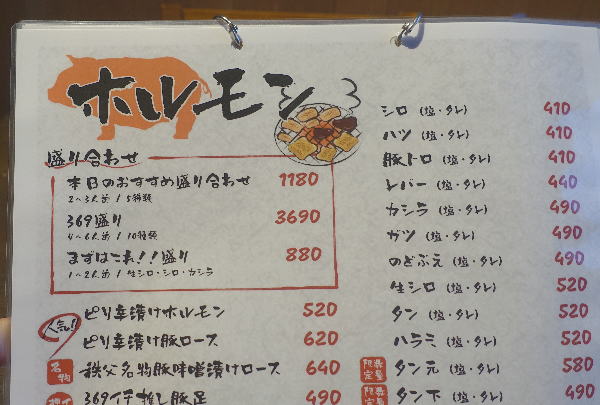 ホルモン
盛り合わせ
本日のおすすめ盛り合わせ 1180
2~3人前 / 5種類
369盛り 3690
4~6人前 / 10種類
まずはこれ!!盛り 880
1~2人前 / 生シロ・シロ・カシラ
人気!!
ピリ辛漬けホルモン 520
ピリ辛漬け豚ロース 620
名物 秩父名物豚味噌漬けロース 640
369イチ推し豚足 490
シロ (塩・タレ) 410
ハツ (塩・タレ) 410
豚トロ (塩・タレ) 410
レバー (塩・タレ) 440
カシラ (塩・タレ) 490
ガツ (塩・タレ) 490
のどぶえ (塩・タレ) 490
生シロ (塩・タレ) 520
タン (塩・タレ) 520
ハラミ (塩・タレ) 520
数量限定 タン元 (塩・タレ) 580
数量限定 タン下 (塩・タレ) 490